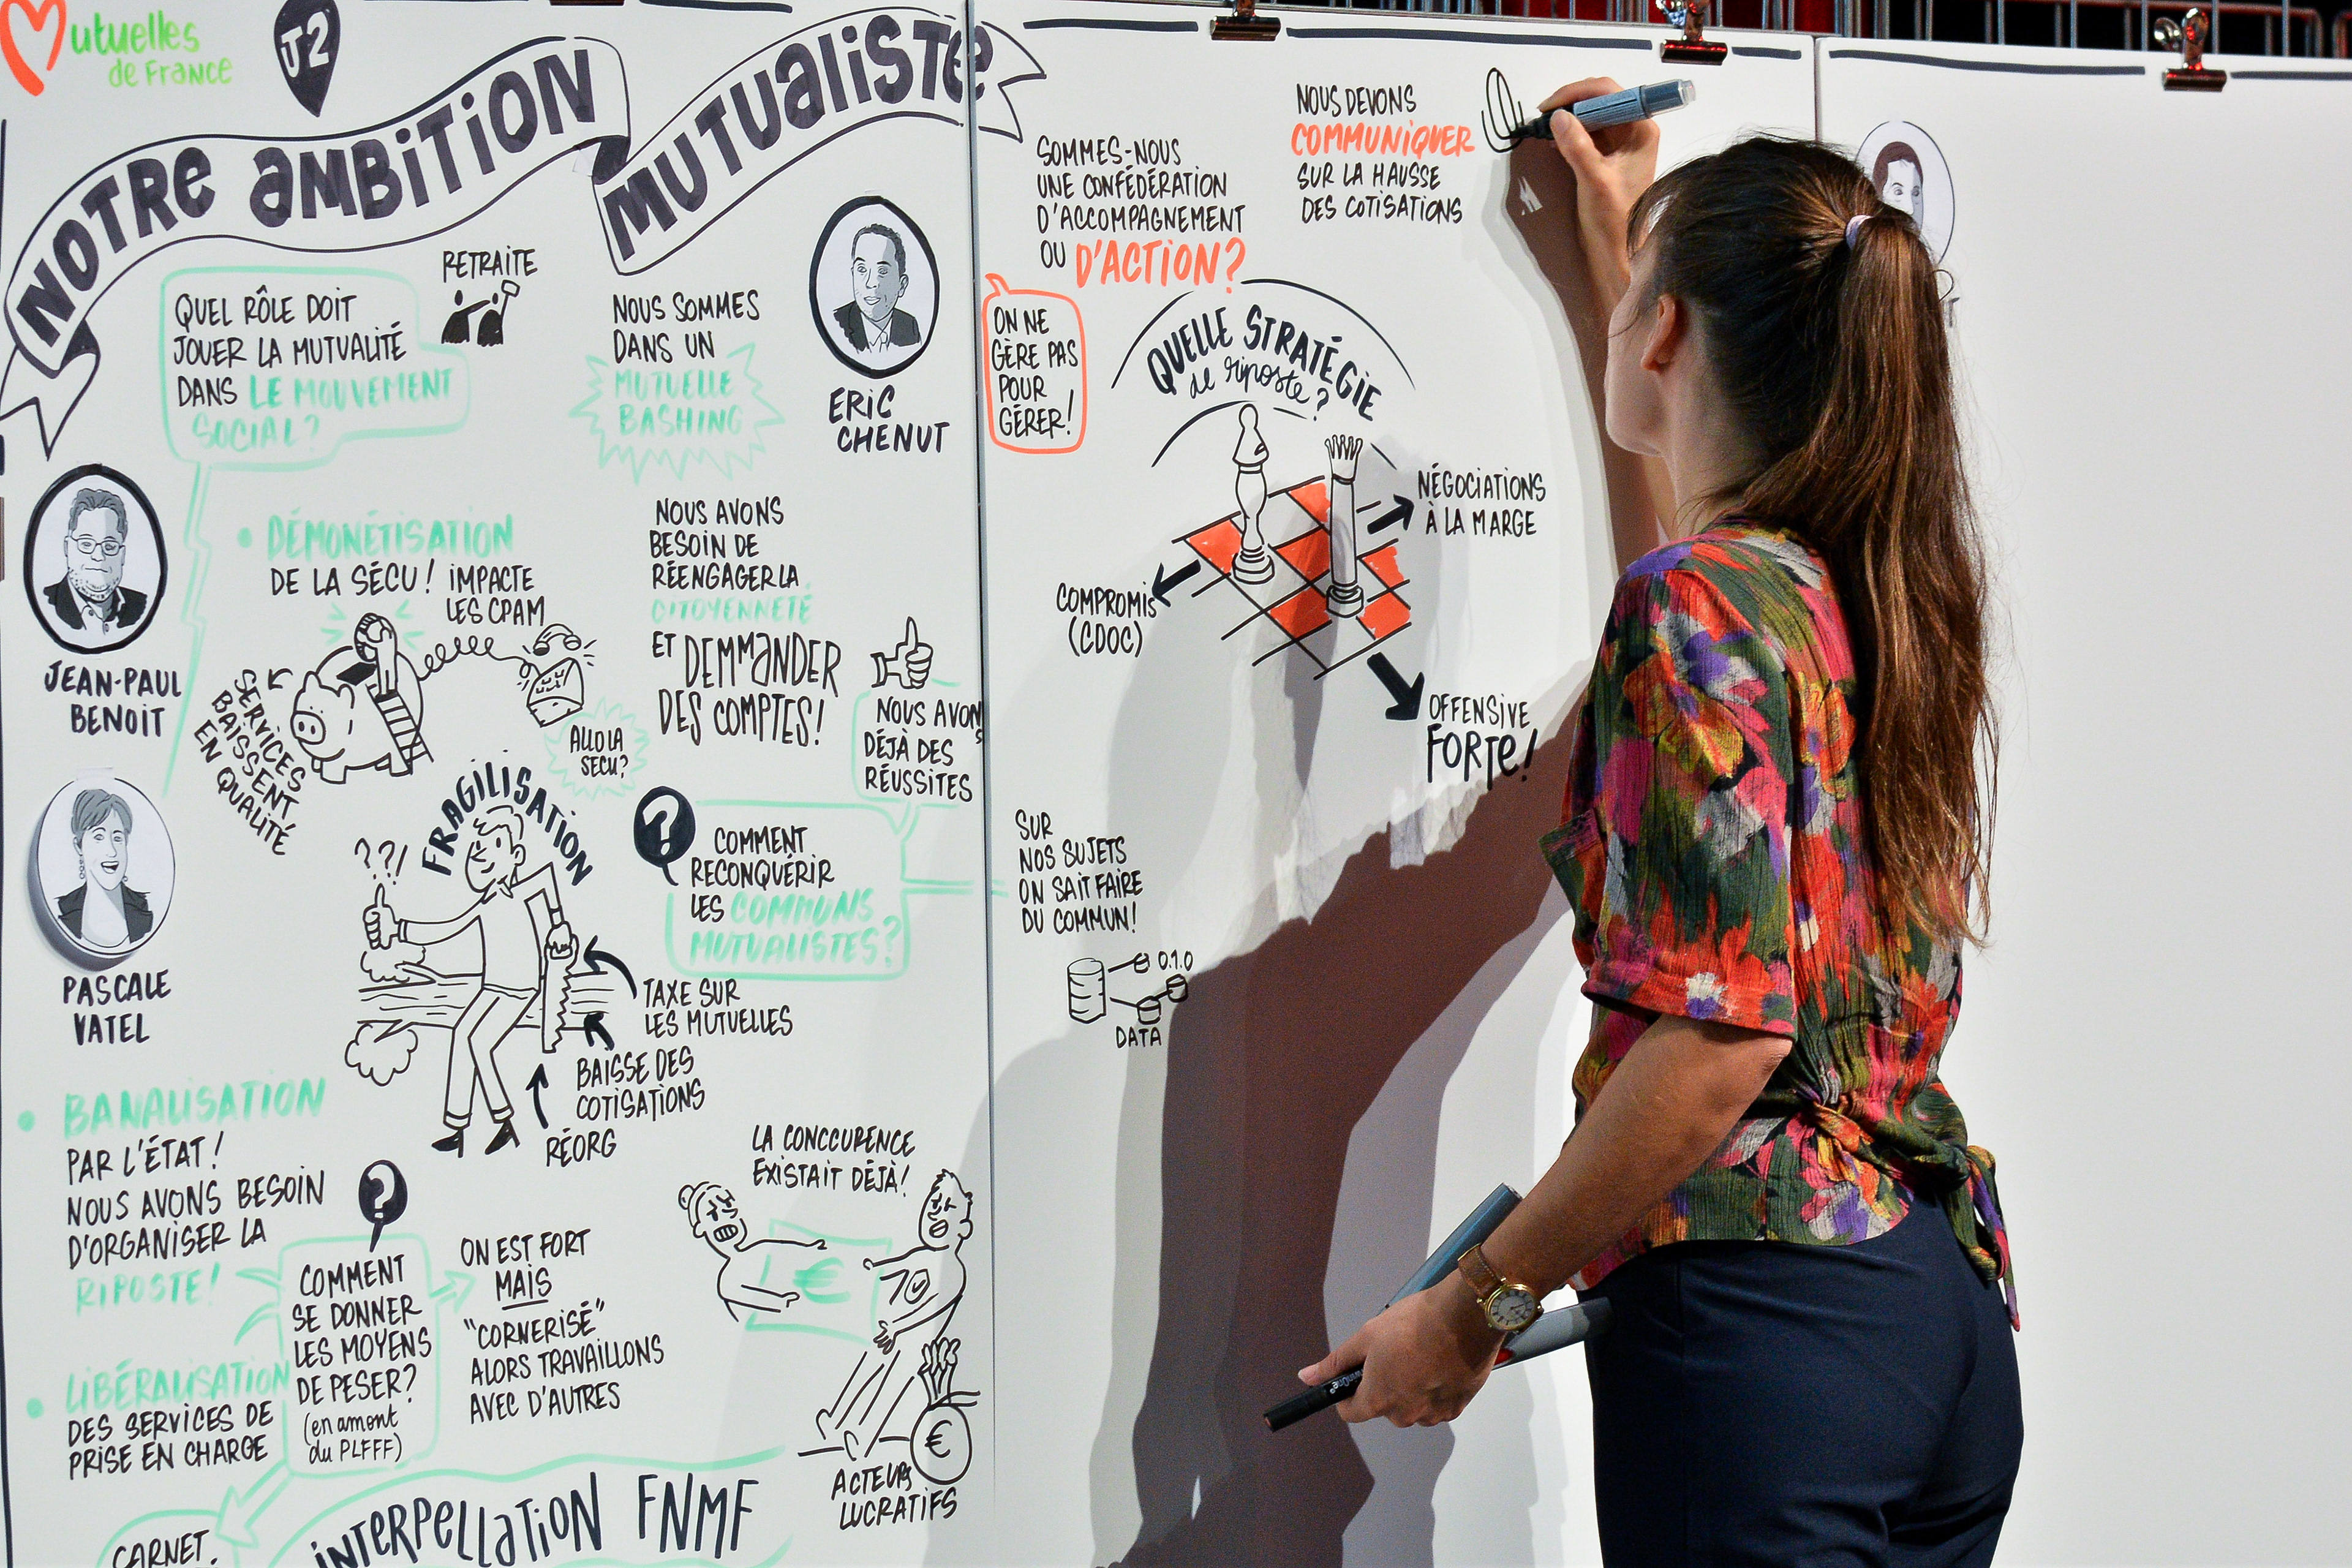 Mutuelles
de France
J2
NOTRE AMBITION
MUTUALISTE
RETRAITE
QUEL RÔLE DOIT
JOUER LA MUTUALITÉ
DANS LE MOUVEMENT
SOCIAL?
NOUS SOMMES
DANS UN
MUTUELLE
BASHING
ERIC
CHENUT
JEAN-PAUL
BENOIT
PASCALE
VATEL
• DÉMONÉTISATION
DE LA SÉCU! IMPACTE
LES CPAM
SERVICES
BAISSENT
EN QUALITÉ
ALLO LA
SECU?
NOUS AVONS
BESOIN DE
RÉENGAGER LA
CITOYENNETÉ
ET DEMMANDER
DES COMPTES!
NOUS AVONS
DÉJÀ DES
RÉUSSITES
FRAGILISATION
? ? !
?
COMMENT
RECONQUÉRIR
LES COMMUNS
MUTUALISTES?
TAXE SUR
LES MUTUELLES
BAISSE DES
COTISATIONS
RÉORG
• BANALISATION
PAR L'ÉTAT!
NOUS AVONS BESOIN
D'ORGANISER LA
RIPOSTE!
• LIBÉRALISATION
DES SERVICES DE
PRISE EN CHARGE
?
COMMENT
SE DONNER
LES MOYENS
DE PESER?
(en amont
du PLFFF)
ON EST FORT
MAIS
"CORNERISÉ"
ALORS TRAVAILLONS
AVEC D'AUTRES
LA CONCCURENCE
EXISTAIT DÉJÀ!
€
€
ACTEURS
LUCRATIFS
CARNET.
INTERPELLATION FNMF
SOMMES-NOUS
UNE CONFÉDÉRATION
D'ACCOMPAGNEMENT
OU D'ACTION?
NOUS DEVONS
COMMUNIQUER
SUR LA HAUSSE
DES COTISATIONS
ON NE
GÈRE PAS
POUR
GÉRER!
QUELLE STRATÉGIE
de riposte?
NÉGOCIATIONS
À LA MARGE
COMPROMIS
(CDOC)
OFFENSIVE
FORTE!
SUR
NOS SUJETS
ON SAIT FAIRE
DU COMMUN!
0.1.0
DATA